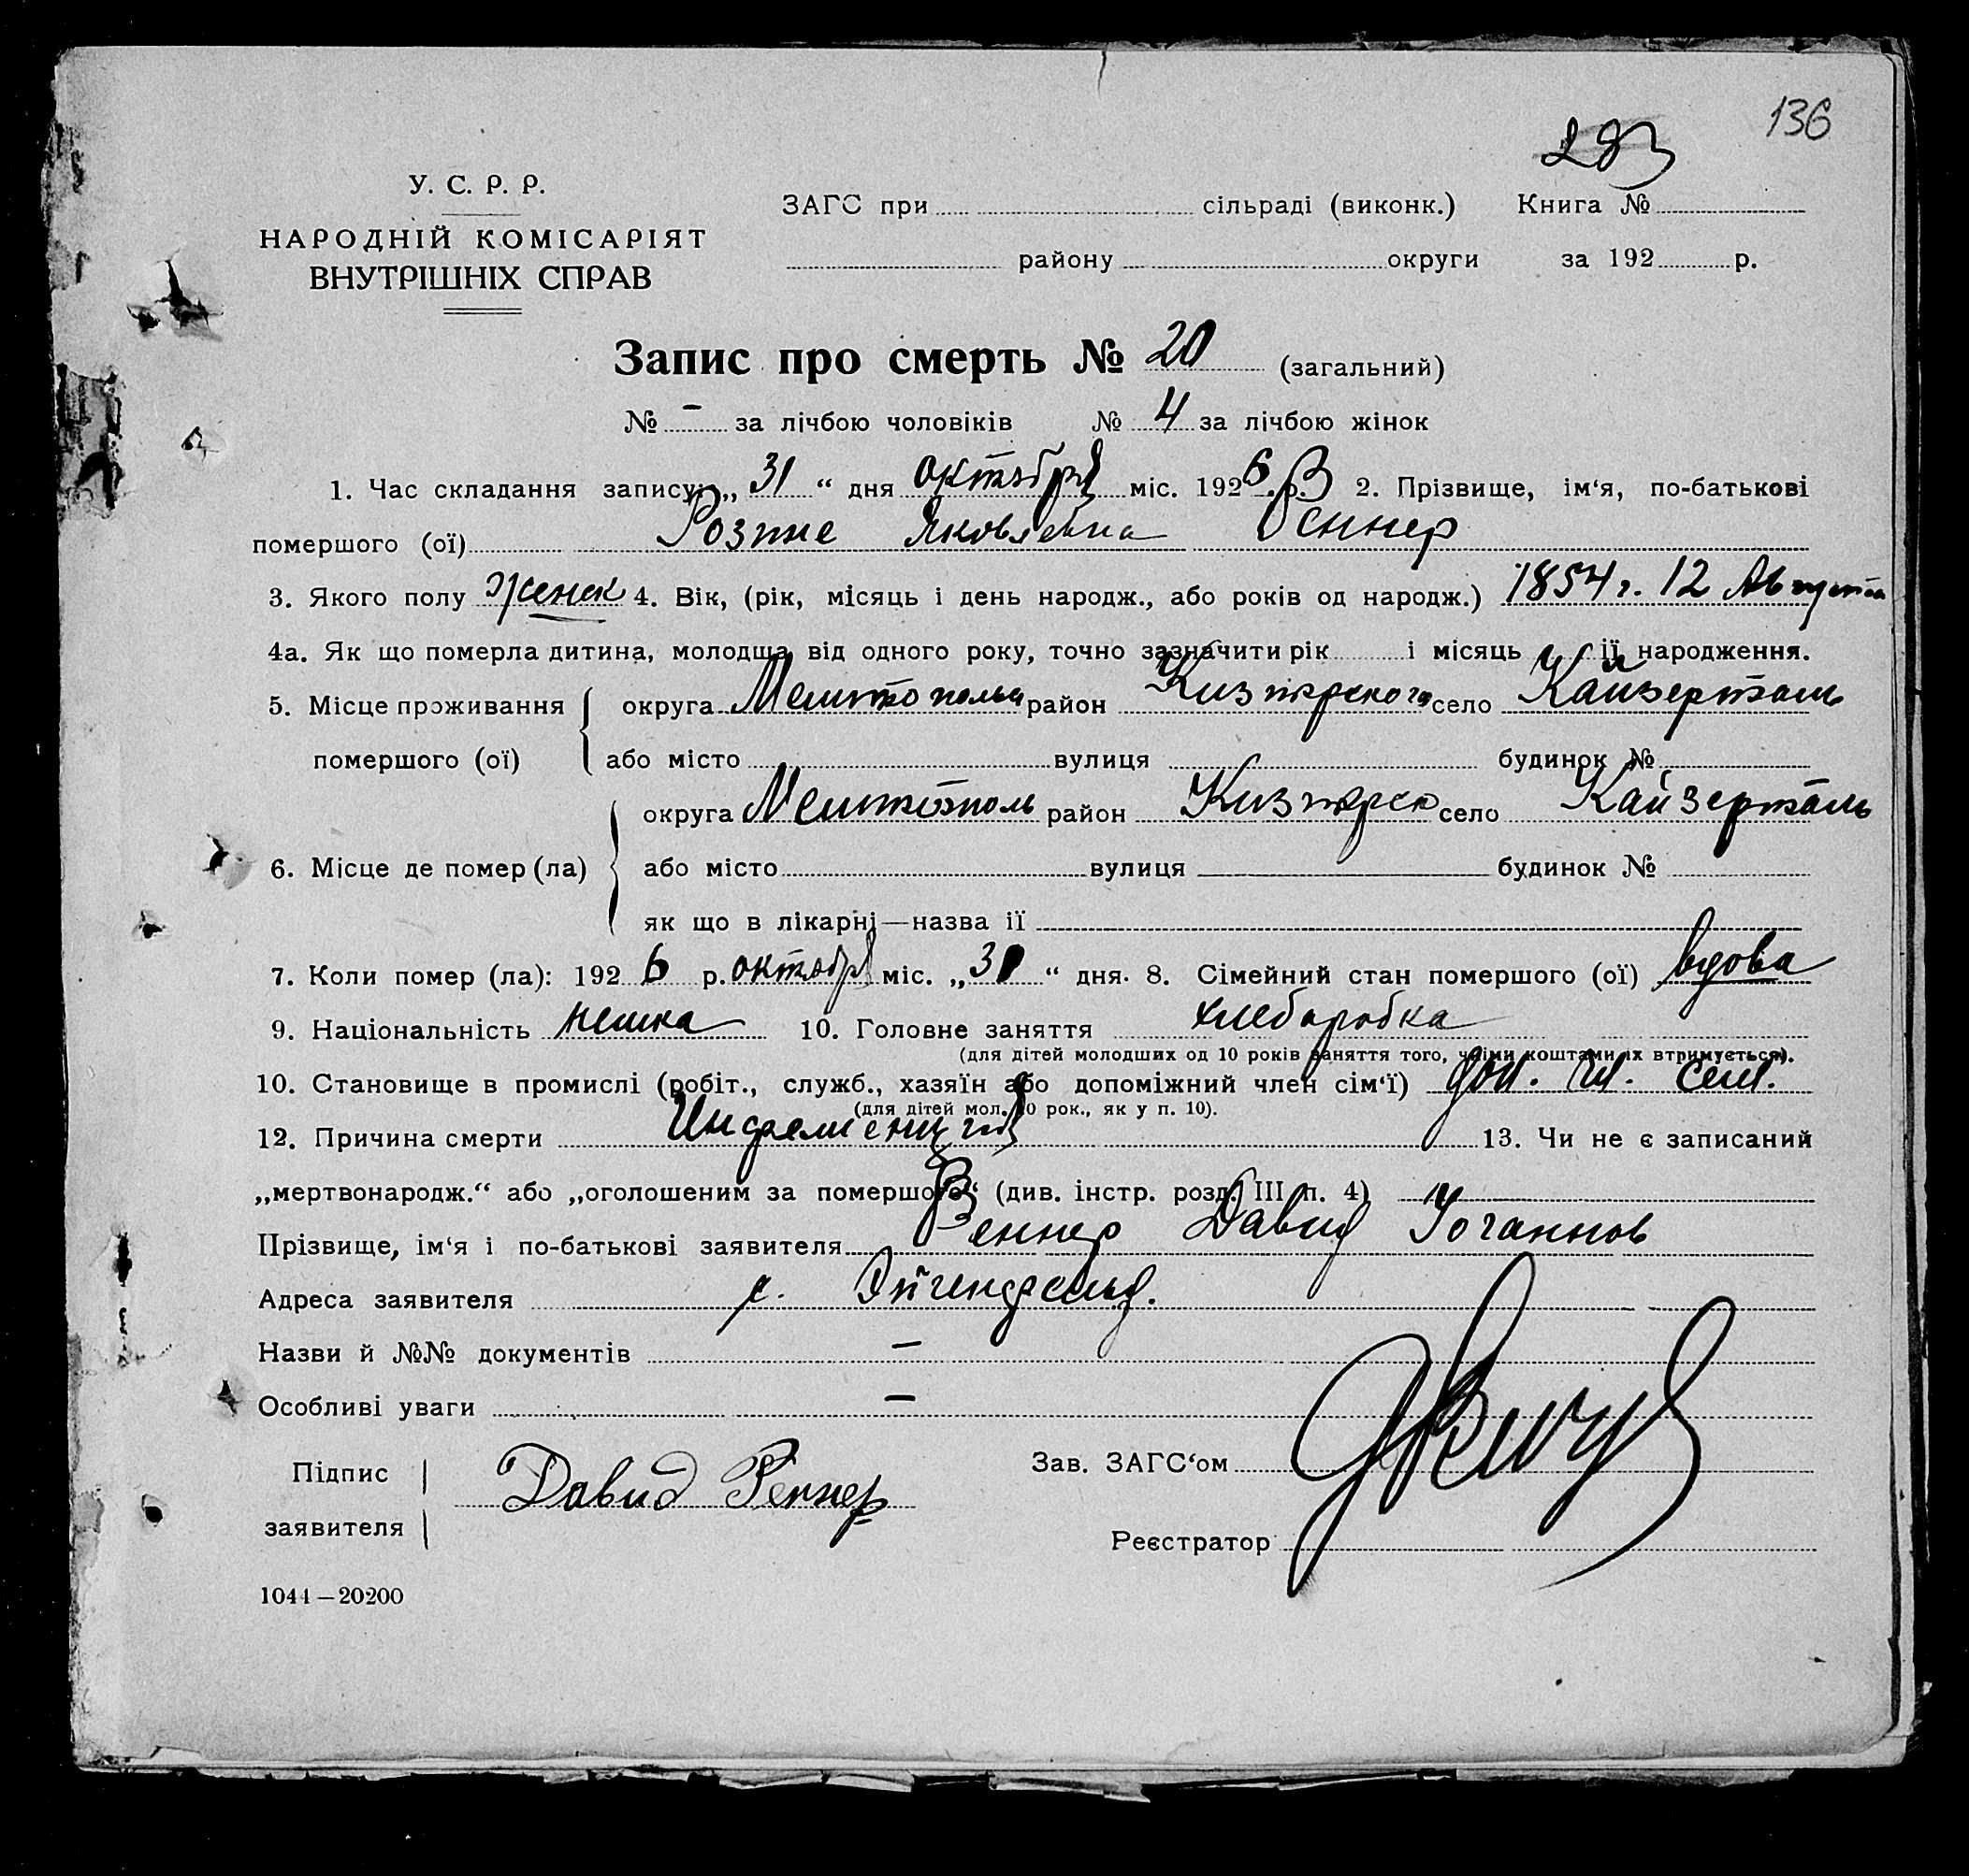 136
283
У. С. Р. Р.
НАРОДНІЙ КОМІСАРІЯТ
ВНУТРІШНІХ СПРАВ
ЗАГС при сільраді (виконк.) Книга №
району округи за 192 р.
Запис про смерть № 20 (загальний)
№ – за лічбою чоловіків № 4 за лічбою жінок
1. Час складання запису: „ 31 “ дня октября міс. 1926 р. 2. Прізвище, ім‘я, по-батькові
помершого (ої) Яковлевна Реннер
3. Якого полу женск 4. Вік, (рік, місяць і день народж., або років од народж.) 1854 г. 12 Августа
4а. Як що померла дитина, молодша від одного року, точно зазначити рік і місяць її народження.
5. Місце проживання округа район село Кайзерталь
помершого (ої) або місто вулиця будинок №
округа Мелитополь район село Кайзерталь
6. Місце де помер (ла) або місто вулиця будинок №
як що в лікарні—назва її
7. Коли помер (ла): 1926 р. октября міс. „ 31 “ дня. 8. Сімейний стан помершого (ої) вдова
9. Національність немка 10. Головне заняття хлеборобка
(для дітей молодших од 10 років заняття того, чиїми коштами їх втримується).
10. Становище в промислі (робіт., служб., хазяїн або допоміжний член сім‘ї) доп. чл. сем.
(для дітей мол. 10 рок., як у п. 10).
12. Причина смерти 13. Чи не є записаний
„мертвонародж.“ або „оголошеним за помершого“ (див. інстр. розд. III п. 4)
Прізвище, ім‘я і по-батькові заявителя Реннер Давид Иоганнов
Адреса заявителя с. Эйгенфельд.
Назви й №№ документів –
Особливі уваги –
Підпис
заявителя Давид Реннер
Зав. ЗАГС‘ом
Реєстратор
1044—20200